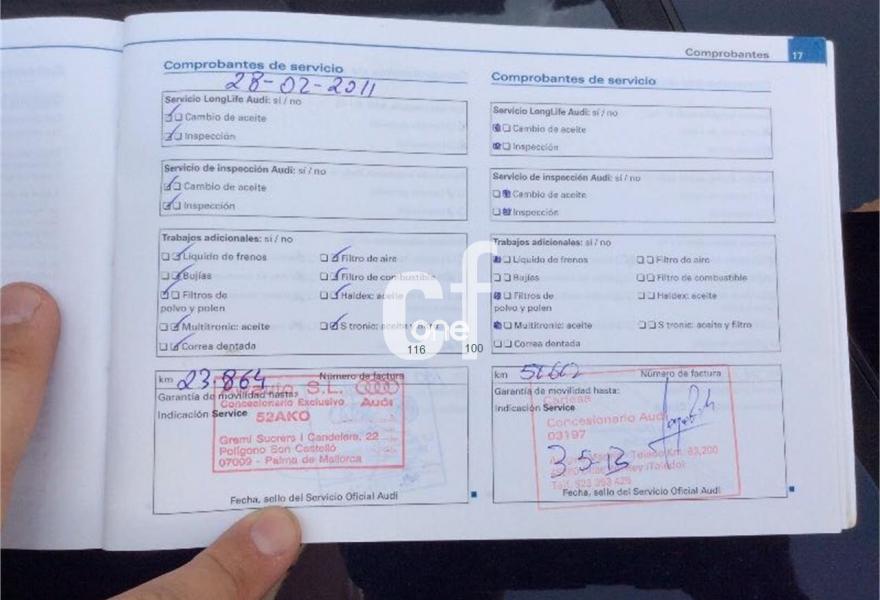 Comprobantes 17
Comprobantes de servicio
28-02-2011
Servicio LongLife Audi: sí / no
Cambio de aceite
Inspección
Servicio de inspección Audi: sí / no
Cambio de aceite
Inspección
Trabajos adicionales: sí / no
Líquido de frenos
Filtro de aire
Bujías
Filtro de combustible
Filtros de
polvo y polen
Haldex: aceite
Multitronic: aceite
S tronic: aceite y filtro
Correa dentada
km 23.864 Número de factura
Garantía de movilidad hasta:
Indicación Service
S.L.
Concesionario Exclusivo Audi
52AKO
Gremi Sucrers i Candelers, 22
Polígono Son Castelló
07009 - Palma de Mallorca
Fecha, sello del Servicio Oficial Audi
Comprobantes de servicio
Servicio LongLife Audi: sí / no
Cambio de aceite
Inspección
Servicio de inspección Audi: sí / no
Cambio de aceite
Inspección
Trabajos adicionales: sí / no
Líquido de frenos
Filtro de aire
Bujías
Filtro de combustible
Filtros de
polvo y polen
Haldex: aceite
Multitronic: aceite
S tronic: aceite y filtro
Correa dentada
km Número de factura
Garantía de movilidad hasta:
Indicación Service
Concesionario Audi
03197
3-5-13
Fecha, sello del Servicio Oficial Audi
cf
one
116 100